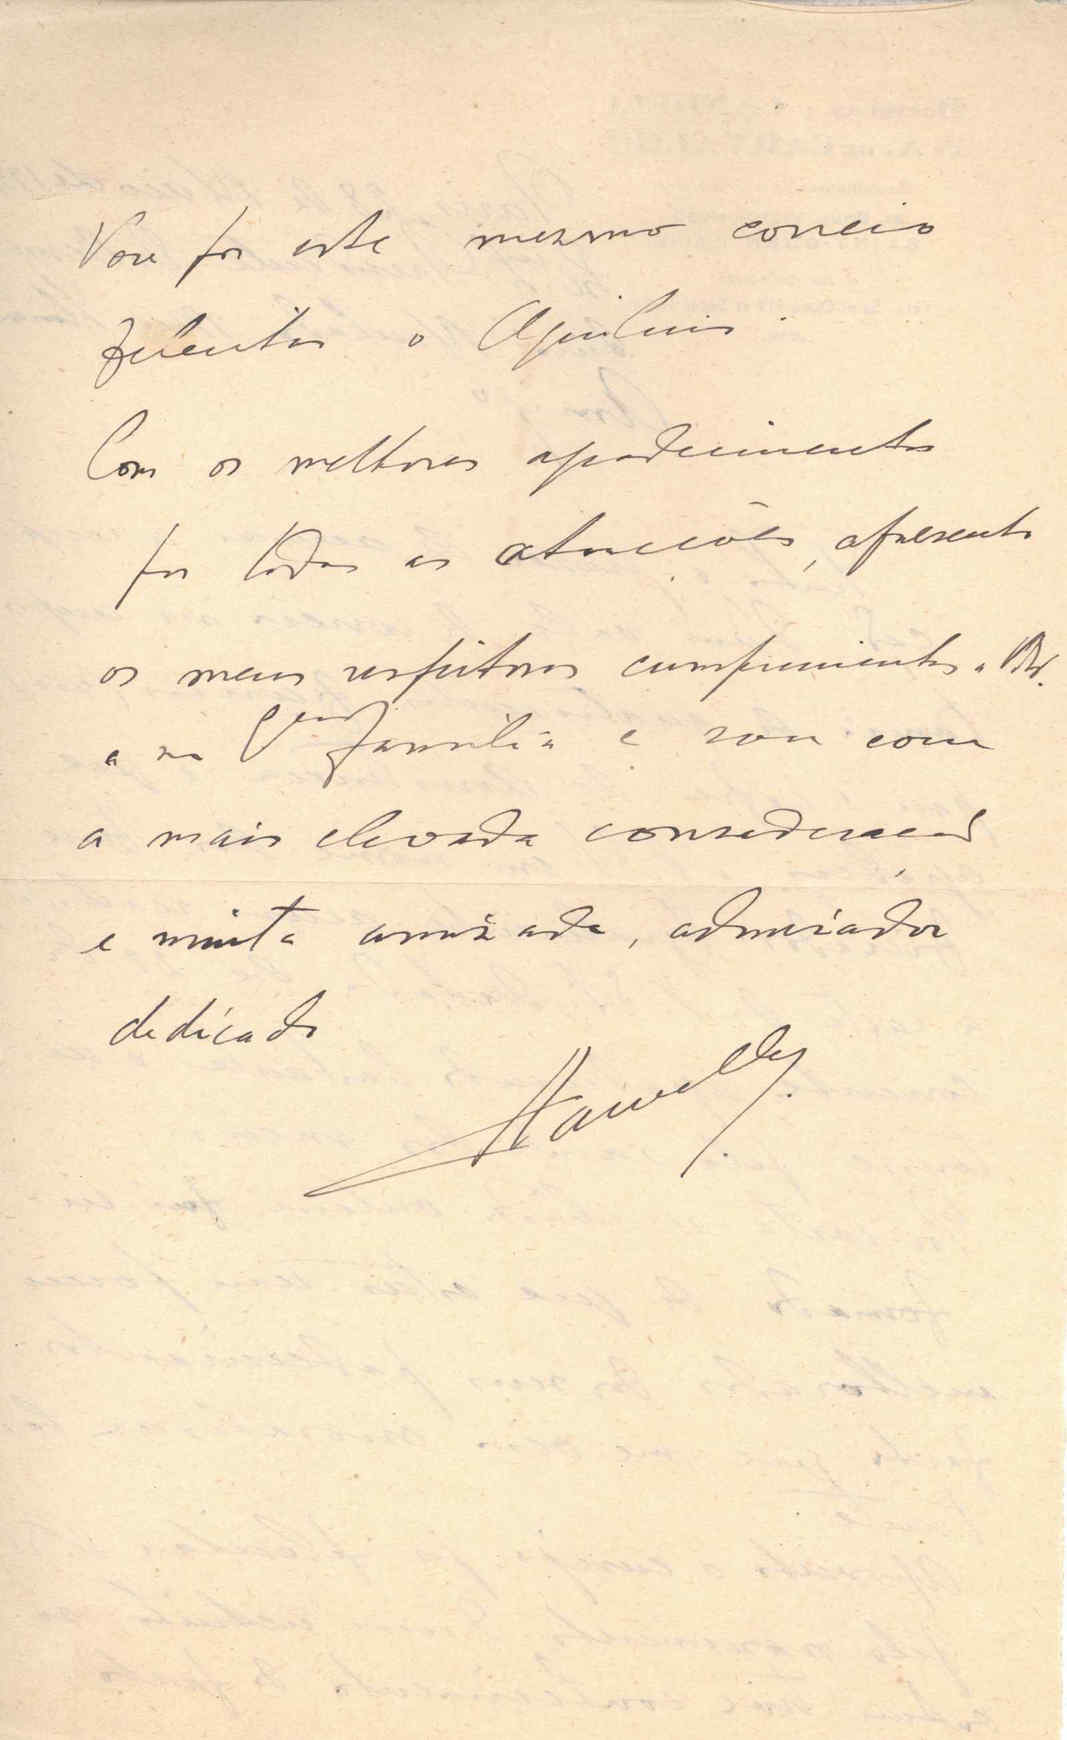 Vou por este mesmo correio
felicitar o Aquilino.
Com os melhores agradecimentos
por todas as atenções, apresento
os meus respeitosos cumprimentos a
a sua Exma família e sou com
a mais elevada consideração
e muita amizade, admirador
dedicado